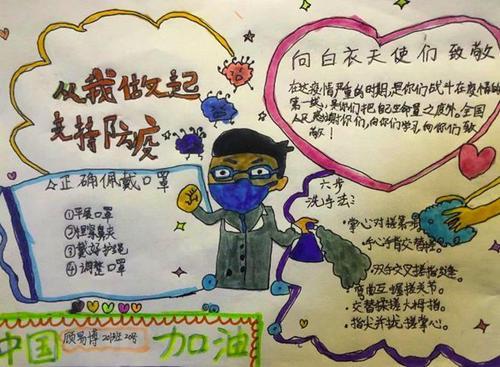 从我做起
支持防疫
正确佩戴口罩
①平展口罩
②扣紧鼻夹
③戴好护绳
④调整口罩
向白衣天使们致敬
在这疫情严重的时期,是你们战斗在疫情的
第一线,是你们把自己生命置之度外。全国
人民感谢你们,向你们学习,向你们致
敬!
六步
洗手法:
·掌心对搓
·手心手背交替搓。
·双手交叉搓指缝。
·弯曲互握搓关节。
·交替揉搓大拇指。
·指尖并拢搓掌心。
中国
加油